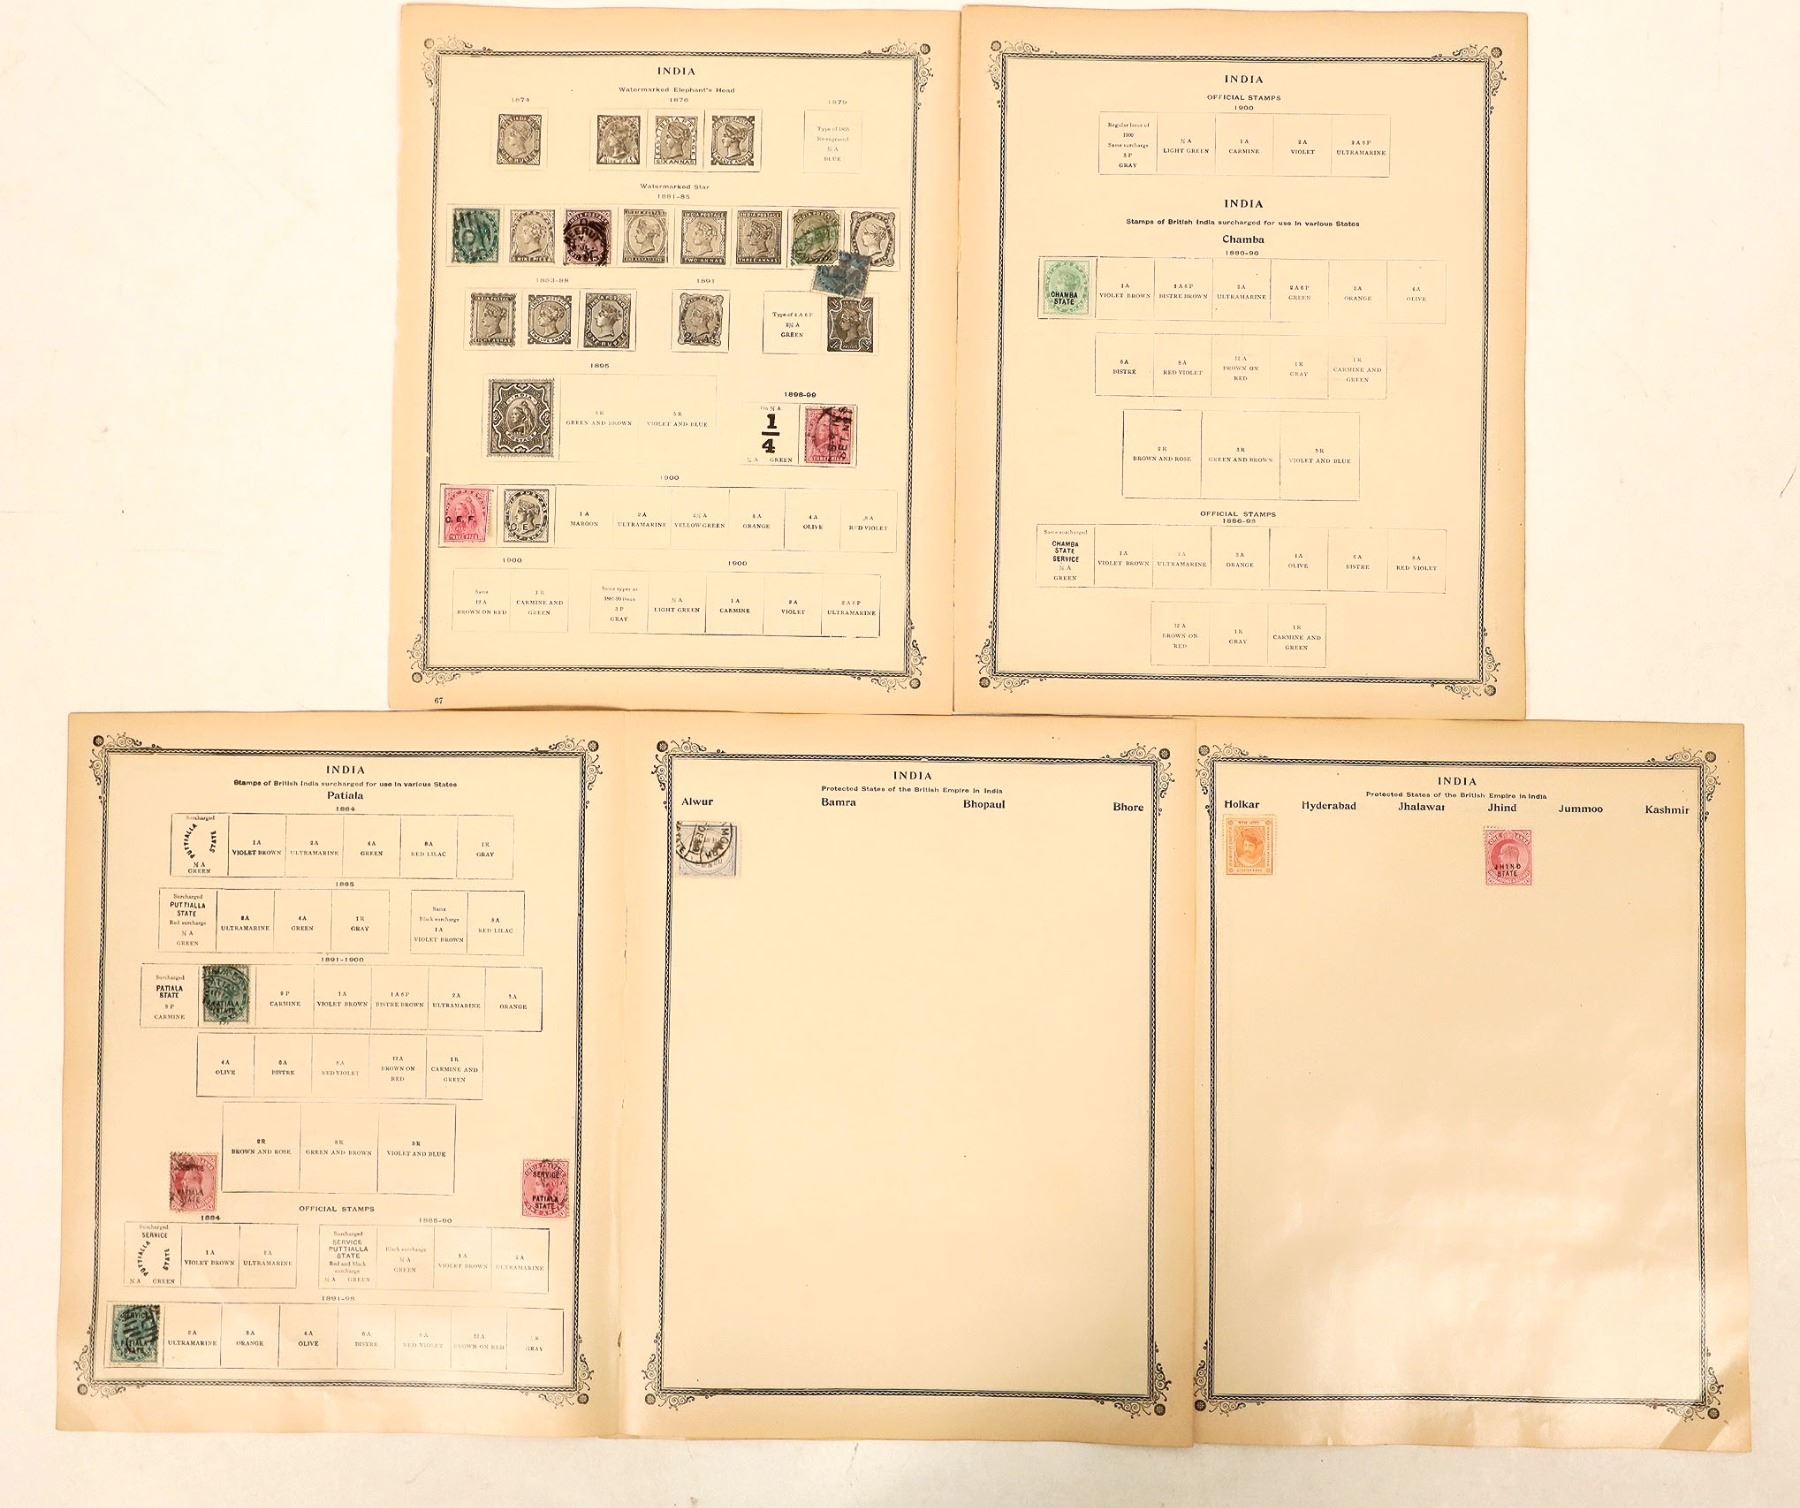 INDIA
Watermarked Elephant's Head
1874 1876 1879
Type of 1865
Re-engraved
½ A
BLUE
Watermarked Star
1881-85
1883-88 1891
Type of 4 A 6 P
2½ A
GREEN
1895
3 R
GREEN AND BROWN
5 R
VIOLET AND BLUE
1898-99
1/4
½ A GREEN
1900
C.E.F.
C.E.F.
1 A
MAROON
2 A
ULTRAMARINE
2½ A
YELLOW GREEN
3 A
ORANGE
4 A
OLIVE
8 A
RED VIOLET
1900 1900
Same
12 A
BROWN ON RED
1 R
CARMINE AND
GREEN
Same types as
3 P
GRAY
½ A
LIGHT GREEN
1 A
CARMINE
2 A
VIOLET
2 A 6 P
ULTRAMARINE
67
INDIA
OFFICIAL STAMPS
1900
Regular Issue of
1900
Same surcharge
3 P
GRAY
½ A
LIGHT GREEN
1 A
CARMINE
2 A
VIOLET
2 A 6 P
ULTRAMARINE
INDIA
Stamps of British India surcharged for use in various States
Chamba
1886-98
CHAMBA
STATE
1 A
VIOLET BROWN
1 A 6 P
BISTRE BROWN
2 A
ULTRAMARINE
2 A 6 P
GREEN
3 A
ORANGE
4 A
OLIVE
6 A
BISTRE
8 A
RED VIOLET
12 A
BROWN ON
RED
1 R
GRAY
1 R
CARMINE AND
GREEN
2 R
BROWN AND ROSE
3 R
GREEN AND BROWN
5 R
VIOLET AND BLUE
OFFICIAL STAMPS
1886-98
Same surcharged
CHAMBA
STATE
SERVICE
½ A
GREEN
1 A
VIOLET BROWN
2 A
ULTRAMARINE
3 A
ORANGE
4 A
OLIVE
6 A
BISTRE
8 A
RED VIOLET
12 A
BROWN ON
RED
1 R
GRAY
1 R
CARMINE AND
GREEN
INDIA
Stamps of British India surcharged for use in various States
Patiala
1884
Surcharged
PUTTIALLA STATE
½ A
GREEN
1 A
VIOLET BROWN
2 A
ULTRAMARINE
4 A
GREEN
8 A
RED LILAC
1 R
GRAY
1885
Surcharged
PUTTIALLA
STATE
Red surcharge
½ A
GREEN
2 A
ULTRAMARINE
4 A
GREEN
1 R
GRAY
Same
Black surcharge
1 A
VIOLET BROWN
8 A
RED LILAC
1891-1900
Surcharged
PATIALA
STATE
3 P
CARMINE
PATIALA
STATE
9 P
CARMINE
1 A
VIOLET BROWN
1 A 6 P
BISTRE BROWN
2 A
ULTRAMARINE
3 A
ORANGE
4 A
OLIVE
6 A
BISTRE
8 A
RED VIOLET
12 A
BROWN ON
RED
1 R
CARMINE AND
GREEN
2 R
BROWN AND ROSE
3 R
GREEN AND BROWN
5 R
VIOLET AND BLUE
SERVICE
PATIALA
STATE
SERVICE
PATIALA
STATE
OFFICIAL STAMPS
1884 1885-90
Surcharged
SERVICE
PUTTIALLA STATE
½ A GREEN
1 A
VIOLET BROWN
2 A
ULTRAMARINE
Surcharged
SERVICE
PUTTIALLA
STATE
Red and black
surcharge
½ A GREEN
Black surcharge
½ A
GREEN
1 A
VIOLET BROWN
2 A
ULTRAMARINE
1891-98
SERVICE
PATIALA
STATE
2 A
ULTRAMARINE
3 A
ORANGE
4 A
OLIVE
6 A
BISTRE
8 A
RED VIOLET
12 A
BROWN ON RED
1 R
GRAY
INDIA
Protected States of the British Empire in India
Alwur Bamra Bhopaul Bhore
INDIA
Protected States of the British Empire in India
Holkar Hyderabad Jhalawar Jhind Jummoo Kashmir
JHIND
STATE